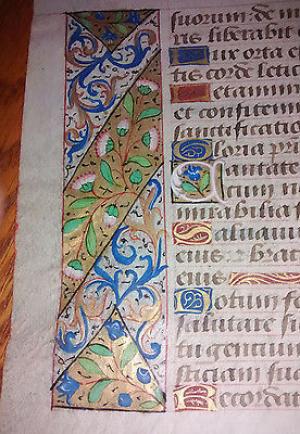 suorum: de m
ris liberabit e
Lux orta e
tis corde leti
Letamini
et confitem
sanctificatio
Gloria pri
Cantate
ticum n
mirabilia f
Saluauit
eius: et brac
eius
Notum fe
salutare s
tu gentium
sticiam sua
Recordat